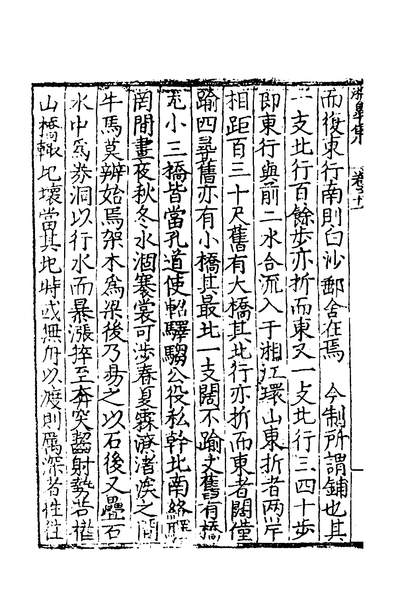 而復東行南則白沙郵舍在焉 今制所謂鋪也其
一支北行百餘步亦折而東又一支北行三四十步
即東行與前二水合流入于湘江環山東折者兩岸
相距百三十尺舊有大橋其北行亦折而東者闊僅
踰四尋舊亦有小橋其最北一支闊不踰丈舊有橋
尤小三橋皆當孔道使軺驛騶公役私幹北南絡繹
罔間晝夜秋冬水涸褰裳可涉春夏霖潦渚涘之間
牛馬莫辨始焉架木爲梁後乃易之以石後又疊石
水中爲券洞以行水而暴漲猝至奔突齧射勢若摧
山橋輙圮壞當其圮時或無舟以渡則厲深者往往